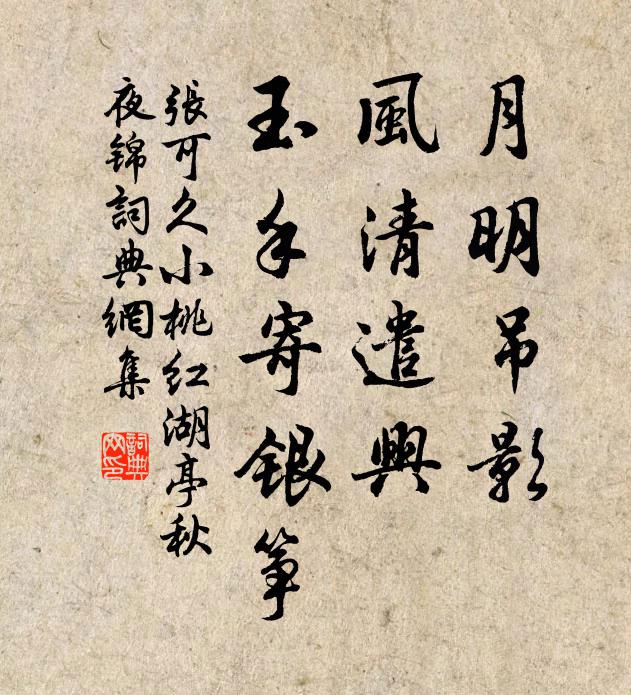 月明吊影
風清遣興
玉手寄銀箏
張可久小桃紅湖亭秋
夜锦詞典網集
詞典
网印